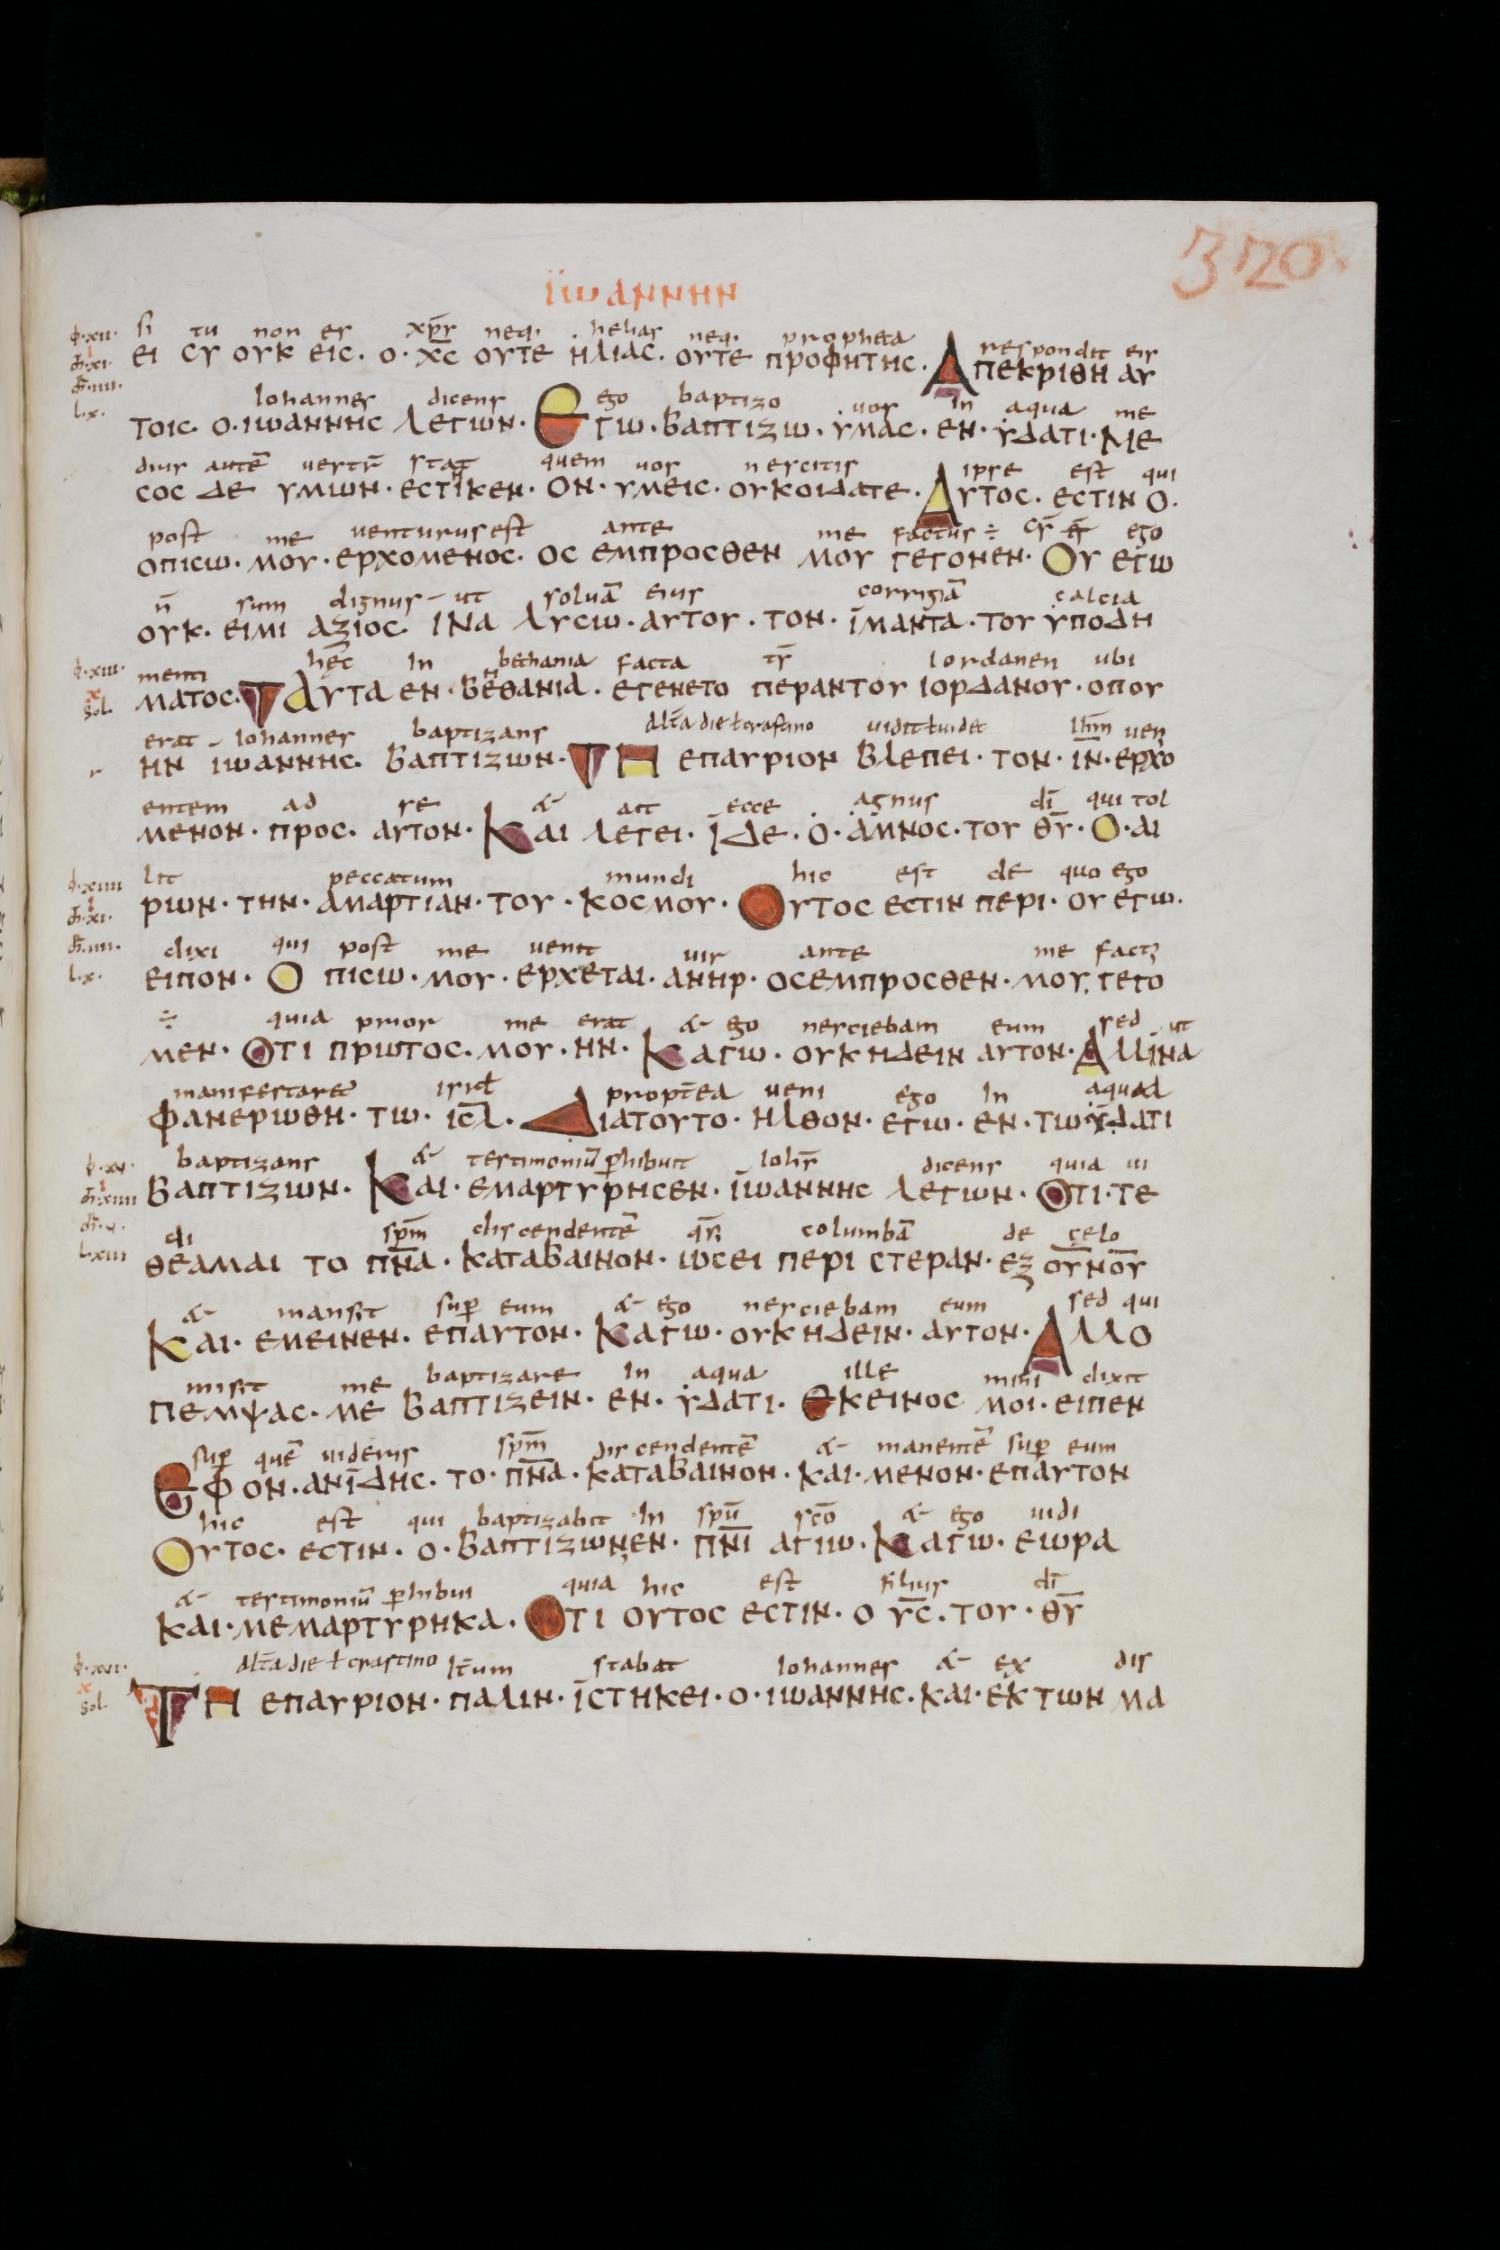 320
ΪΩΑΝΝΗΝ
si tu non es xp̅s neq· helias neq· propheta respondit eis
ΕΙ CΥ ΟΥΚ ΕΙC· Ο· Χ̅C ΟΥΤΕ ΗΛΙΑC· ΟΥΤΕ ΠΡΟΦΗΤΗC· ΑΠΕΚΡΙΘΗ ΑΥ
Iohannes dicens ego baptizo uos in aqua me
ΤΟΙC· Ο·ΙΩΑΝΝΗC ΛΕΓΩΝ· ΕΓΩ·ΒΑΠΤΙΖΩ·ΥΜΑC· ΕΝ·ΥΔΑΤΙ·ΜΕ
dius autē quem uos nescitis ipse est qui
CΟC ΔΕ ΥΜΙΩΝ·ΕCΤΙΚΕΝ· ΟΝ·ΥΜΕΙC· ΟΥΚΟΙΔΑΤΕ· ΑΥΤΟC· ΕCΤΙΝ Ο·
post me uenturus est ante me factus ÷ ego
ΟΠΙCΩ· ΜΟΥ·ΕΡΧΟΜΕΝΟC· ΟC ΕΜΠΡΟCΘΕΝ ΜΟΥ ΓΕΓΟΝΕΝ· ΟΥ ΕΓΩ
n̅ sum dignus ut soluā eius corrigiā calcia
ΟΥΚ· ΕΙΜΙ ΑΞΙΟC· ΙΝΑ ΛΥCΩ·ΑΥΤΟΥ· ΤΟΝ· ΙΜΑΝΤΑ·ΤΟΥ ΥΠΟΔΗ
menti hęc in bethania facta tr̅ Iordanen ubi
ΜΑΤΟC·ΤΑΥΤΑ ΕΝ·ΒΗΘΑΝΙΑ· ΕΓΕΝΕΤΟ ΠΕΡΑΝΤΟΥ ΙΟΡΔΑΝΟΥ·ΟΠΟΥ
erat Iohannes baptizans alt̅a die ł crastino uidit ł uidet ih̅m uen
ΗΝ ΙΩΑΝΝΗC· ΒΑΠΤΙΖΩΝ·ΤΗ ΕΠΑΥΡΙΟΝ ΒΛΕΠΕΙ· ΤΟΝ· Ι̅Ν·ΕΡΧΟ
entem ad se & ait ecce agnus di̅ qui tol
ΜΕΝΟΝ· ΠΡΟC· ΑΥΤΟΝ· ΚΑΙ ΛΕΓΕΙ· ΙΔΕ·Ο·ΑΜΝΟC·ΤΟΥ Θ̅Υ·Ο·ΑΙ
lit peccatum mundi hic est de quo ego
ΡΩΝ· ΤΗΝ· ΑΜΑΡΤΙΑΝ·ΤΟΥ·ΚΟCΜΟΥ· ΟΥΤΟC ΕCΤΙΝ ΠΕΡΙ·ΟΥ ΕΓΩ·
dixi qui post me uenit uir ante me fact;
ΕΙΠΟΝ· Ο ΠΙCΩ·ΜΟΥ·ΕΡΧΕΤΑΙ·ΑΝΗΡ· ΟCΕΜΠΡΟCΘΕΝ·ΜΟΥ·ΓΕΓΟ
÷ quia prior me erat & ego nesciebam eum sed ut
ΜΕΝ· ΟΤΙ ΠΡΩΤΟC·ΜΟΥ·ΗΝ· ΚΑΓΩ· ΟΥΚ ΗΔΕΙΝ ΑΥΤΟΝ·ΑΛΛΙΝΑ
manifestaret isrl̅ propt̅ea ueni ego in aqua
ΦΑΝΕΡΩΘΗ· ΤΩ· ΙC̅Λ· ΔΙΑΤΟΥΤΟ·ΗΛΘΟΝ·ΕΓΩ·ΕΝ·ΤΩΥΔΑΤΙ
baptizans & testimoniū phibuit Ioh̅s dicens quia ui
ΒΑΠΤΙΖΩΝ· ΚΑΙ·ΕΜΑΡΤΥΡΗCΕΝ·ΙΩΑΝΝΗC ΛΕΓΩΝ· ΟΤΙ·ΤΕ
di sp̅m discendentē columbā de cęlo
ΘΕΑΜΑΙ ΤΟ Π̅Ν̅Α·ΚΑΤΑΒΑΙΝΟΝ·ΙΩCΕΙ ΠΕΡΙ CΤΕΡΑΝ·ΕΞ ΟΥ̅ΝΟ̅Υ
& mansit sup̅ eum & ego nesciebam eum sed qui
ΚΑΙ·ΕΜΕΙΝΕΝ·ΕΠΑΥΤΟΝ·ΚΑΓΩ·ΟΥΚ ΗΔΕΙΝ·ΑΥΤΟΝ·ΑΛΛΟ
misit me baptizare in aqua ille mihi dixit
ΠΕΜΨΑC·ΜΕ ΒΑΠΤΙΖΕΙΝ·ΕΝ·ΥΔΑΤΙ·ΕΚΕΙΝΟC ΜΟΙ·ΕΙΠΕΝ
sup̅ quē uideris sp̅m discendentē & manentē sup̅ eum
ΕΦΟΝ·ΑΝΙΔΗC·ΤΟ·Π̅Ν̅Α·ΚΑΤΑΒΑΙΝΟΝ·ΚΑΙ·ΜΕΝΟΝ·ΕΠΑΥΤΟΝ
hic est qui baptizabit in sp̅u sc̅o & ego uidi
ΟΥΤΟC·ΕCΤΙΝ·Ο·ΒΑΠΤΙΖΩΝΕΝ·Π̅Ν̅Ι ΑΓΙΩ·ΚΑΓΩ·ΕΩΡΑ
& testimoniū phibui quia hic est filius di̅
ΚΑΙ·ΜΕΜΑΡΤΥΡΗΚΑ·ΟΤΙ ΟΥΤΟC ΕCΤΙΝ·Ο Υ̅C·ΤΟΥ·Θ̅Υ
alt̅a die ł crastino it̅um stabat Iohannes & ex dis
ΤΗ ΕΠΑΥΡΙΟΝ·ΠΑΛΙΝ·ΙCΤΗΚΕΙ·Ο·ΙΩΑΝΝΗC·ΚΑΙ·ΕΚ ΤΩΝ ΜΑ